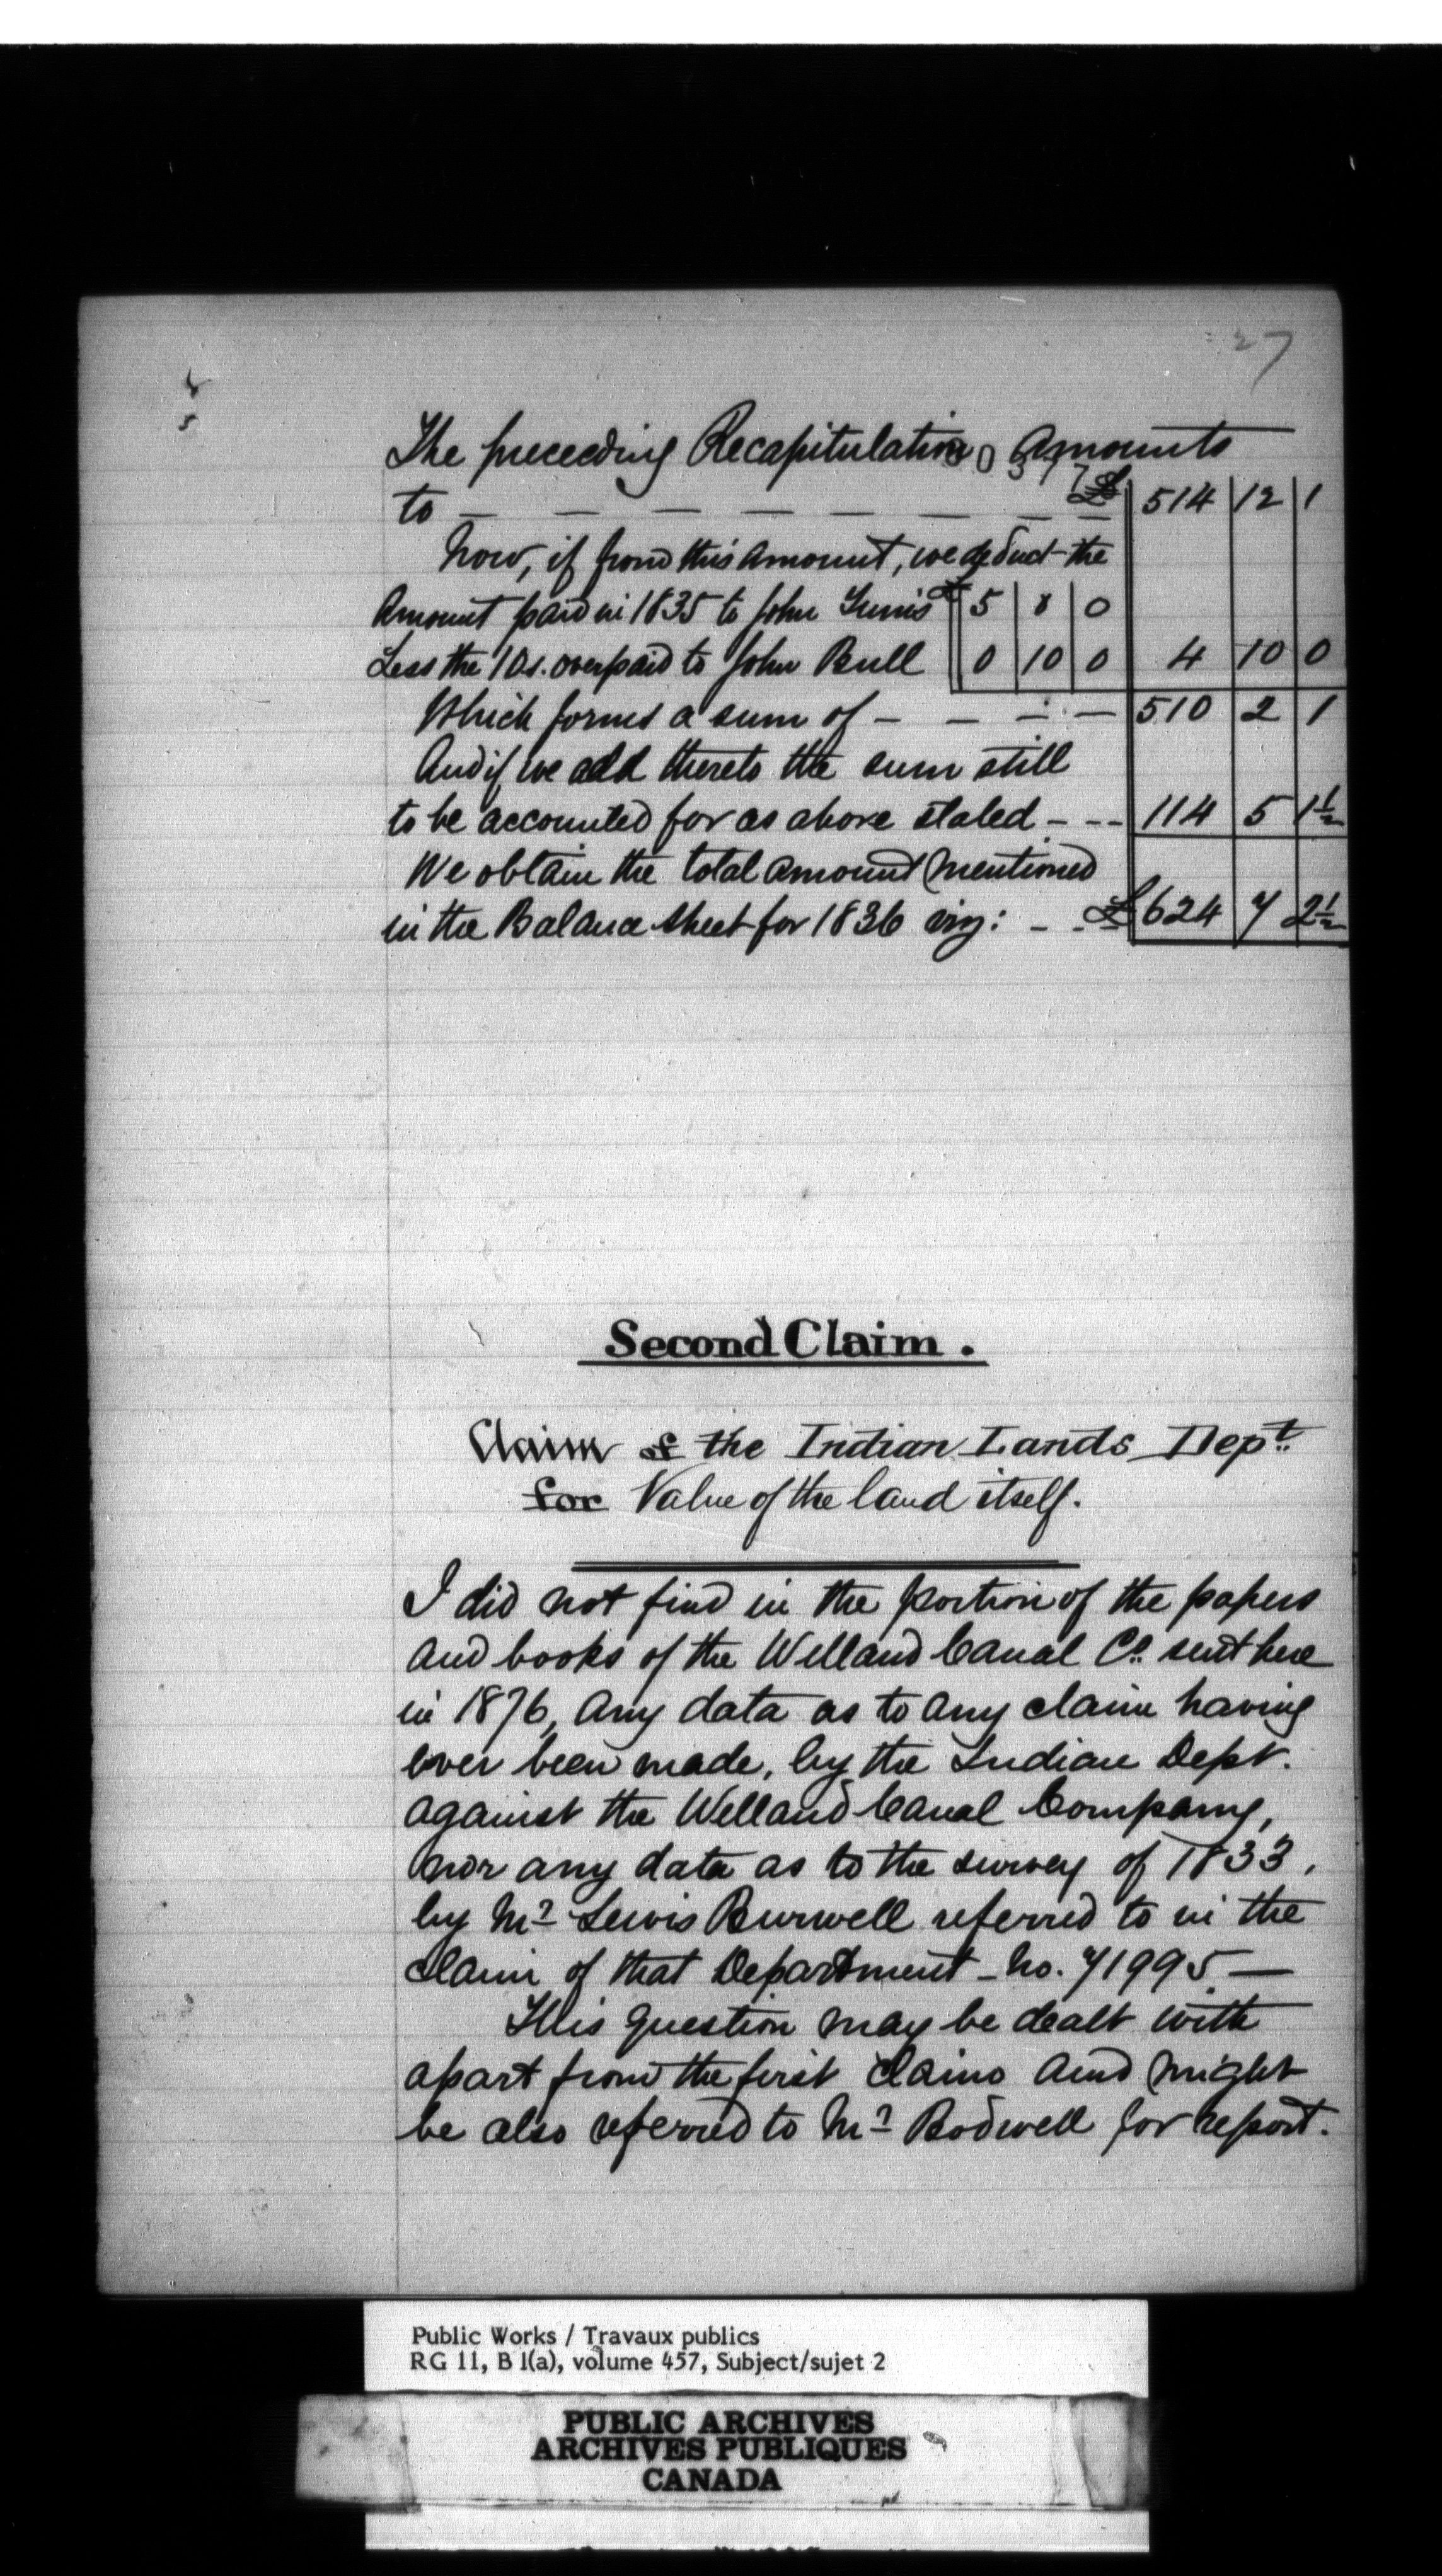 27
The preceeding Recapitulation Amounts
to — — — — — — — £ 514 12 1
Now, if from this Amount, we deduct the
Amount paid in 1835 to John £ 5 8 0
Less the 10s. overpaid to John Bull 0 10 0 4 10 0
Which forms a sum of — — — — 510 2 1
And if we add thereto the sum still
to be accounted for as above stated - - - 114 5 1½
We obtain the total amount mentioned
in the Balance Sheet for 1836 viz: - - £ 624 7 2½
Second Claim.
Claim of the Indian Lands Dept.
for Value of the land itself.
I did not find in the portion of the papers
and books of the Welland Canal Co. sent here
in 1876, any data as to any claim having
ever been made, by the Indian Dept.
against the Welland Canal Company,
nor any data as to the survey of 1833,
by Mr Lewis Burwell referred to in the
claim of that Department – No. 71995 —
This question may be dealt with
apart from the first claim and might
be also referred to Mr Bodwell for report.
Public Works / Travaux publics
RG 11, B 1(a), volume 457, Subject/sujet 2
PUBLIC ARCHIVES
ARCHIVES PUBLIQUES
CANADA